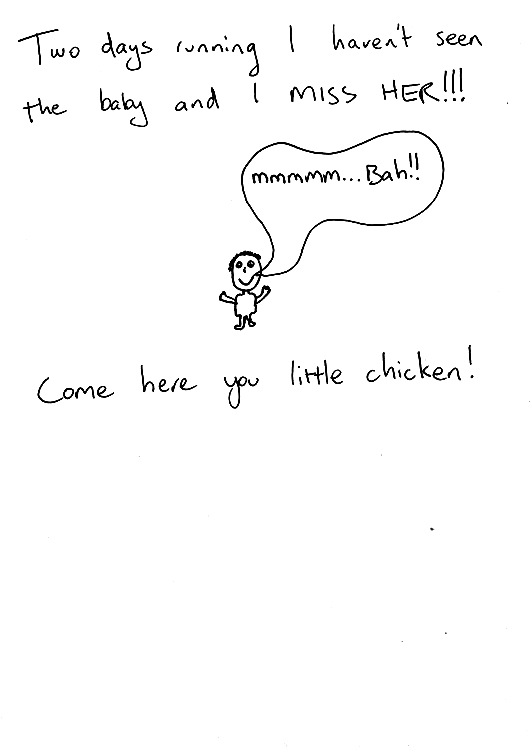 Two days running I haven't seen
the baby and I MISS HER!!!
mmmmm... Bah!!
Come here you little chicken!